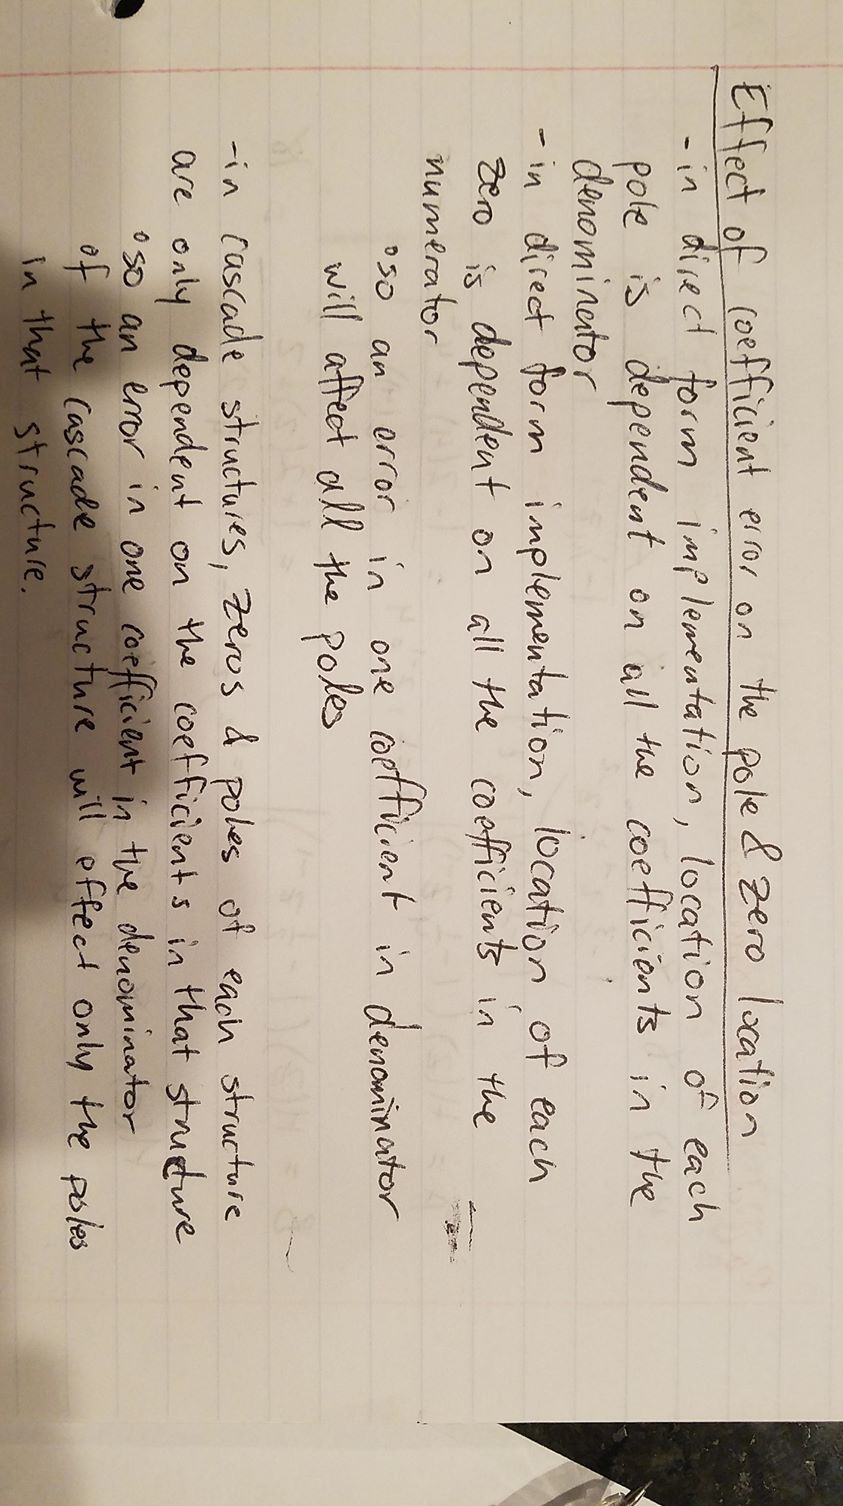 Effect of coefficient error on the pole & zero location
- in direct form implementation, location of each
pole is dependent on all the coefficients in the
denominator
- in direct form implementation, location of each
zero is dependent on all the coefficients in the
numerator
°so an error in one coefficient in denominator
will affect all the poles
- in cascade structures, zeros & poles of each structure
are only dependent on the coefficients in that structure
°so an error in one coefficient in the denominator
of the cascade structure will effect only the poles
in that structure.